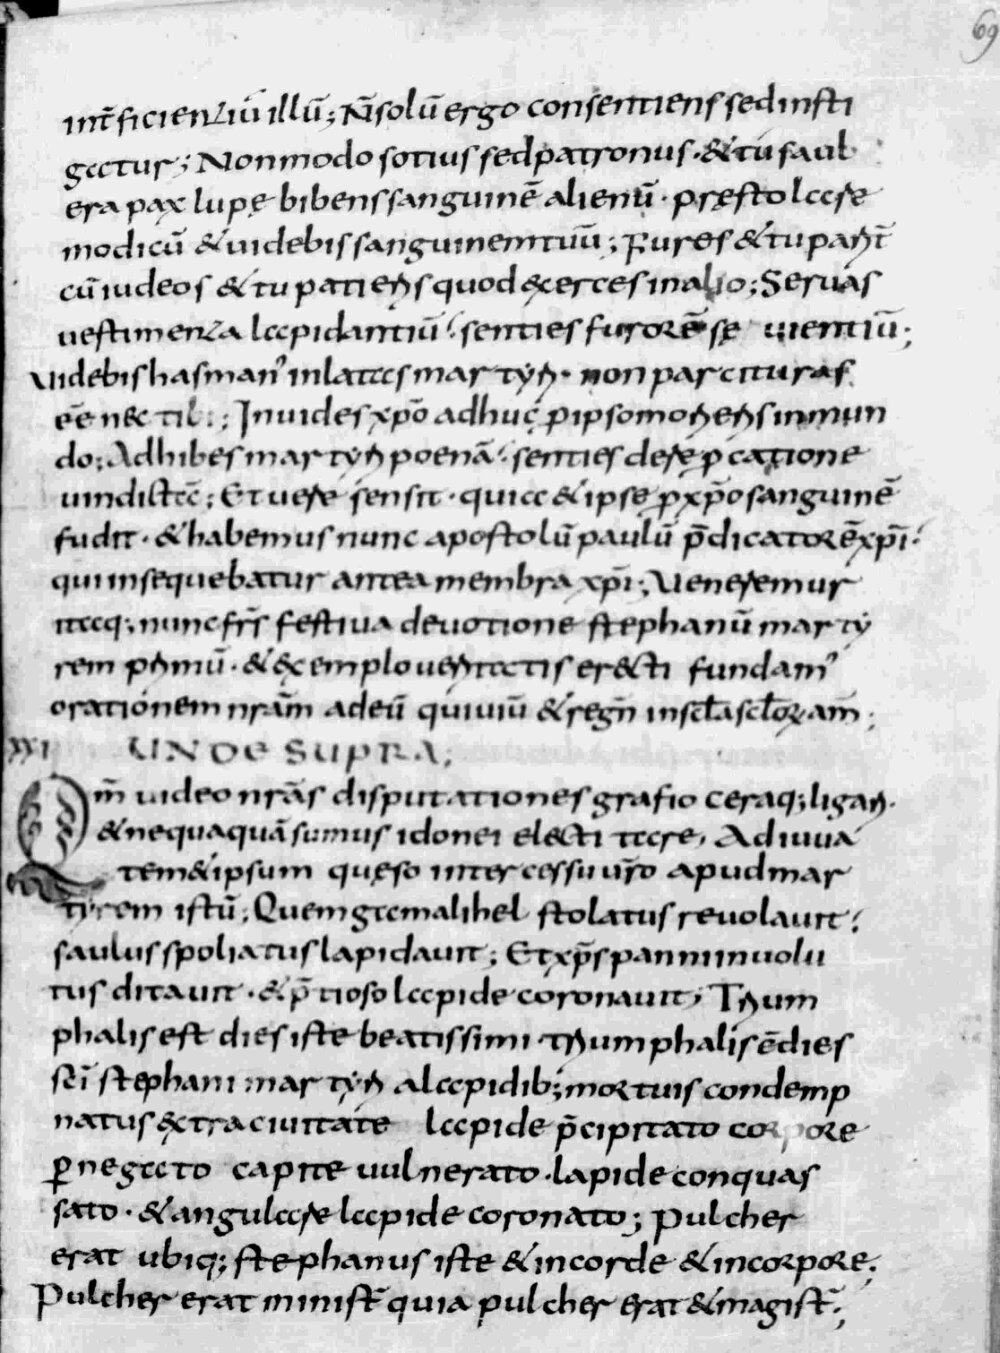 69
int̄ficientiū illū; Nn̄ solū ergo consentiens sed insti
gatur; Non modo sotius sed patronus · & tu saul
era pax lupę bibens sanguinē alienū · pręstolare
modicū & uidebis sanguinem tuū; Fures & tu parit̄
cū iudeos & tu patieris quod exerces in alio; Seruas
uestimenta lapidantiū · senties furorē se uientiū;
Uidebis has man' in latas martyri · non parcituras
eē nec tibi; Inuides xp̄o adhuc ꝑ ipso morieris in mun
do; Adhibes martyri poenā · senties de se p̄catione
uindictā; Et uere sensit · quia & ipse ꝓ xp̄o sanguinē
fudit · & habemus nunc apostolū paulū p̄dicatorē xp̄i ·
qui insequebatur antea membra xp̄i; Ueneremur
itaq; nunc fr̄s festiua deuotione stephanū marty
rem primū · & exemplo ueritatis erecti fundam'
orationem nr̄am ad eū qui uiuit & regn̄ in scl̄a scl̄oꝝ am̄;
XXI UNDE SUPRA;
Qm̄ uideo nr̄as disputationes grafio ceraq; ligari ·
& nequaquā sumus idonei electi tacre, Adiuua
tem & ipsum quęso intercessu ur̄o apud mar
tyrem istū; Quem gamalihel stolatus reuolauit ·
saulus spoliatus lapidauit; Et xp̄s pannis inuolu
tus ditauit · & p̄tioso lapide coronauit; Trium
phalis est dies iste beatissimi · triumphalis ē dies
sc̄i stephani martyri a lapidib; mortuis condemp
natus extra ciuitate lapide p̄cipitato corpore
ꝑ negato capite uulnerato · lapide conquas
sato · & angulare lapide coronato; Pulcher
erat ubiq; stephanus iste & in corde & in corpore;
Pulcher erat minist̄ quia pulcher erat & magist̄;